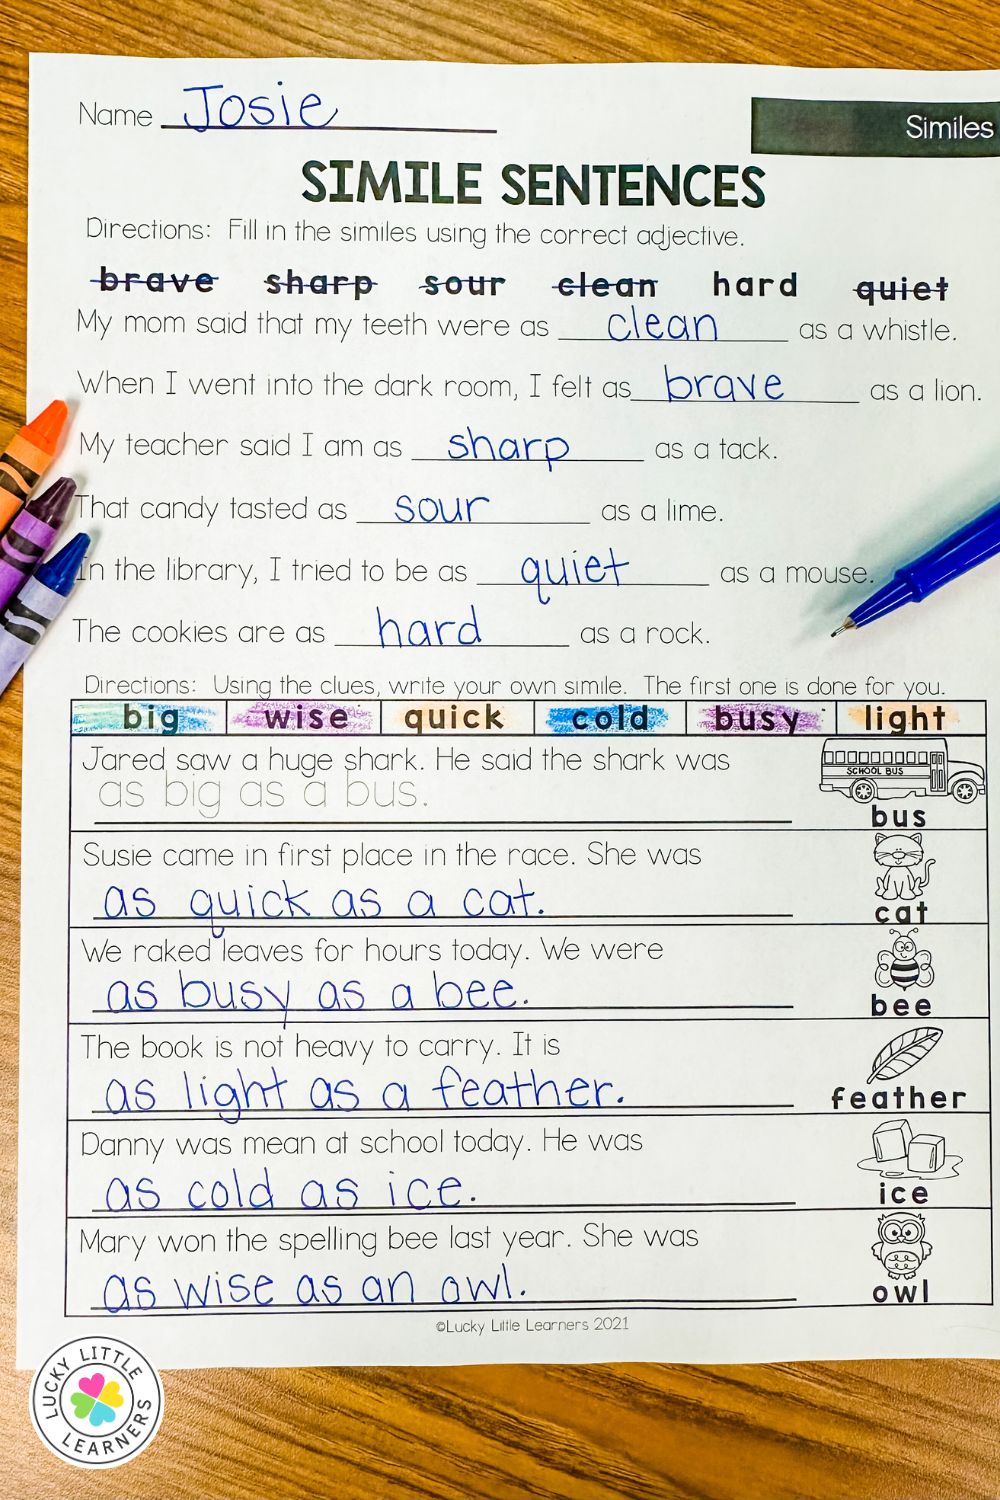 Name Josie
Similes
SIMILE SENTENCES
Directions: Fill in the similes using the correct adjective.
brave sharp sour clean hard quiet
My mom said that my teeth were as clean as a whistle.
When I went into the dark room, I felt as brave as a lion.
My teacher said I am as sharp as a tack.
That candy tasted as sour as a lime.
In the library, I tried to be as quiet as a mouse.
The cookies are as hard as a rock.
Directions: Using the clues, write your own simile. The first one is done for you.
big wise quick cold busy light
Jared saw a huge shark. He said the shark was
as big as a bus.
SCHOOL BUS
bus
Susie came in first place in the race. She was
as quick as a cat.
cat
We raked leaves for hours today. We were
as busy as a bee.
bee
The book is not heavy to carry. It is
as light as a feather.
feather
Danny was mean at school today. He was
as cold as ice.
ice
Mary won the spelling bee last year. She was
as wise as an owl.
owl
©Lucky Little Learners 2021
LUCKY LITTLE LEARNERS